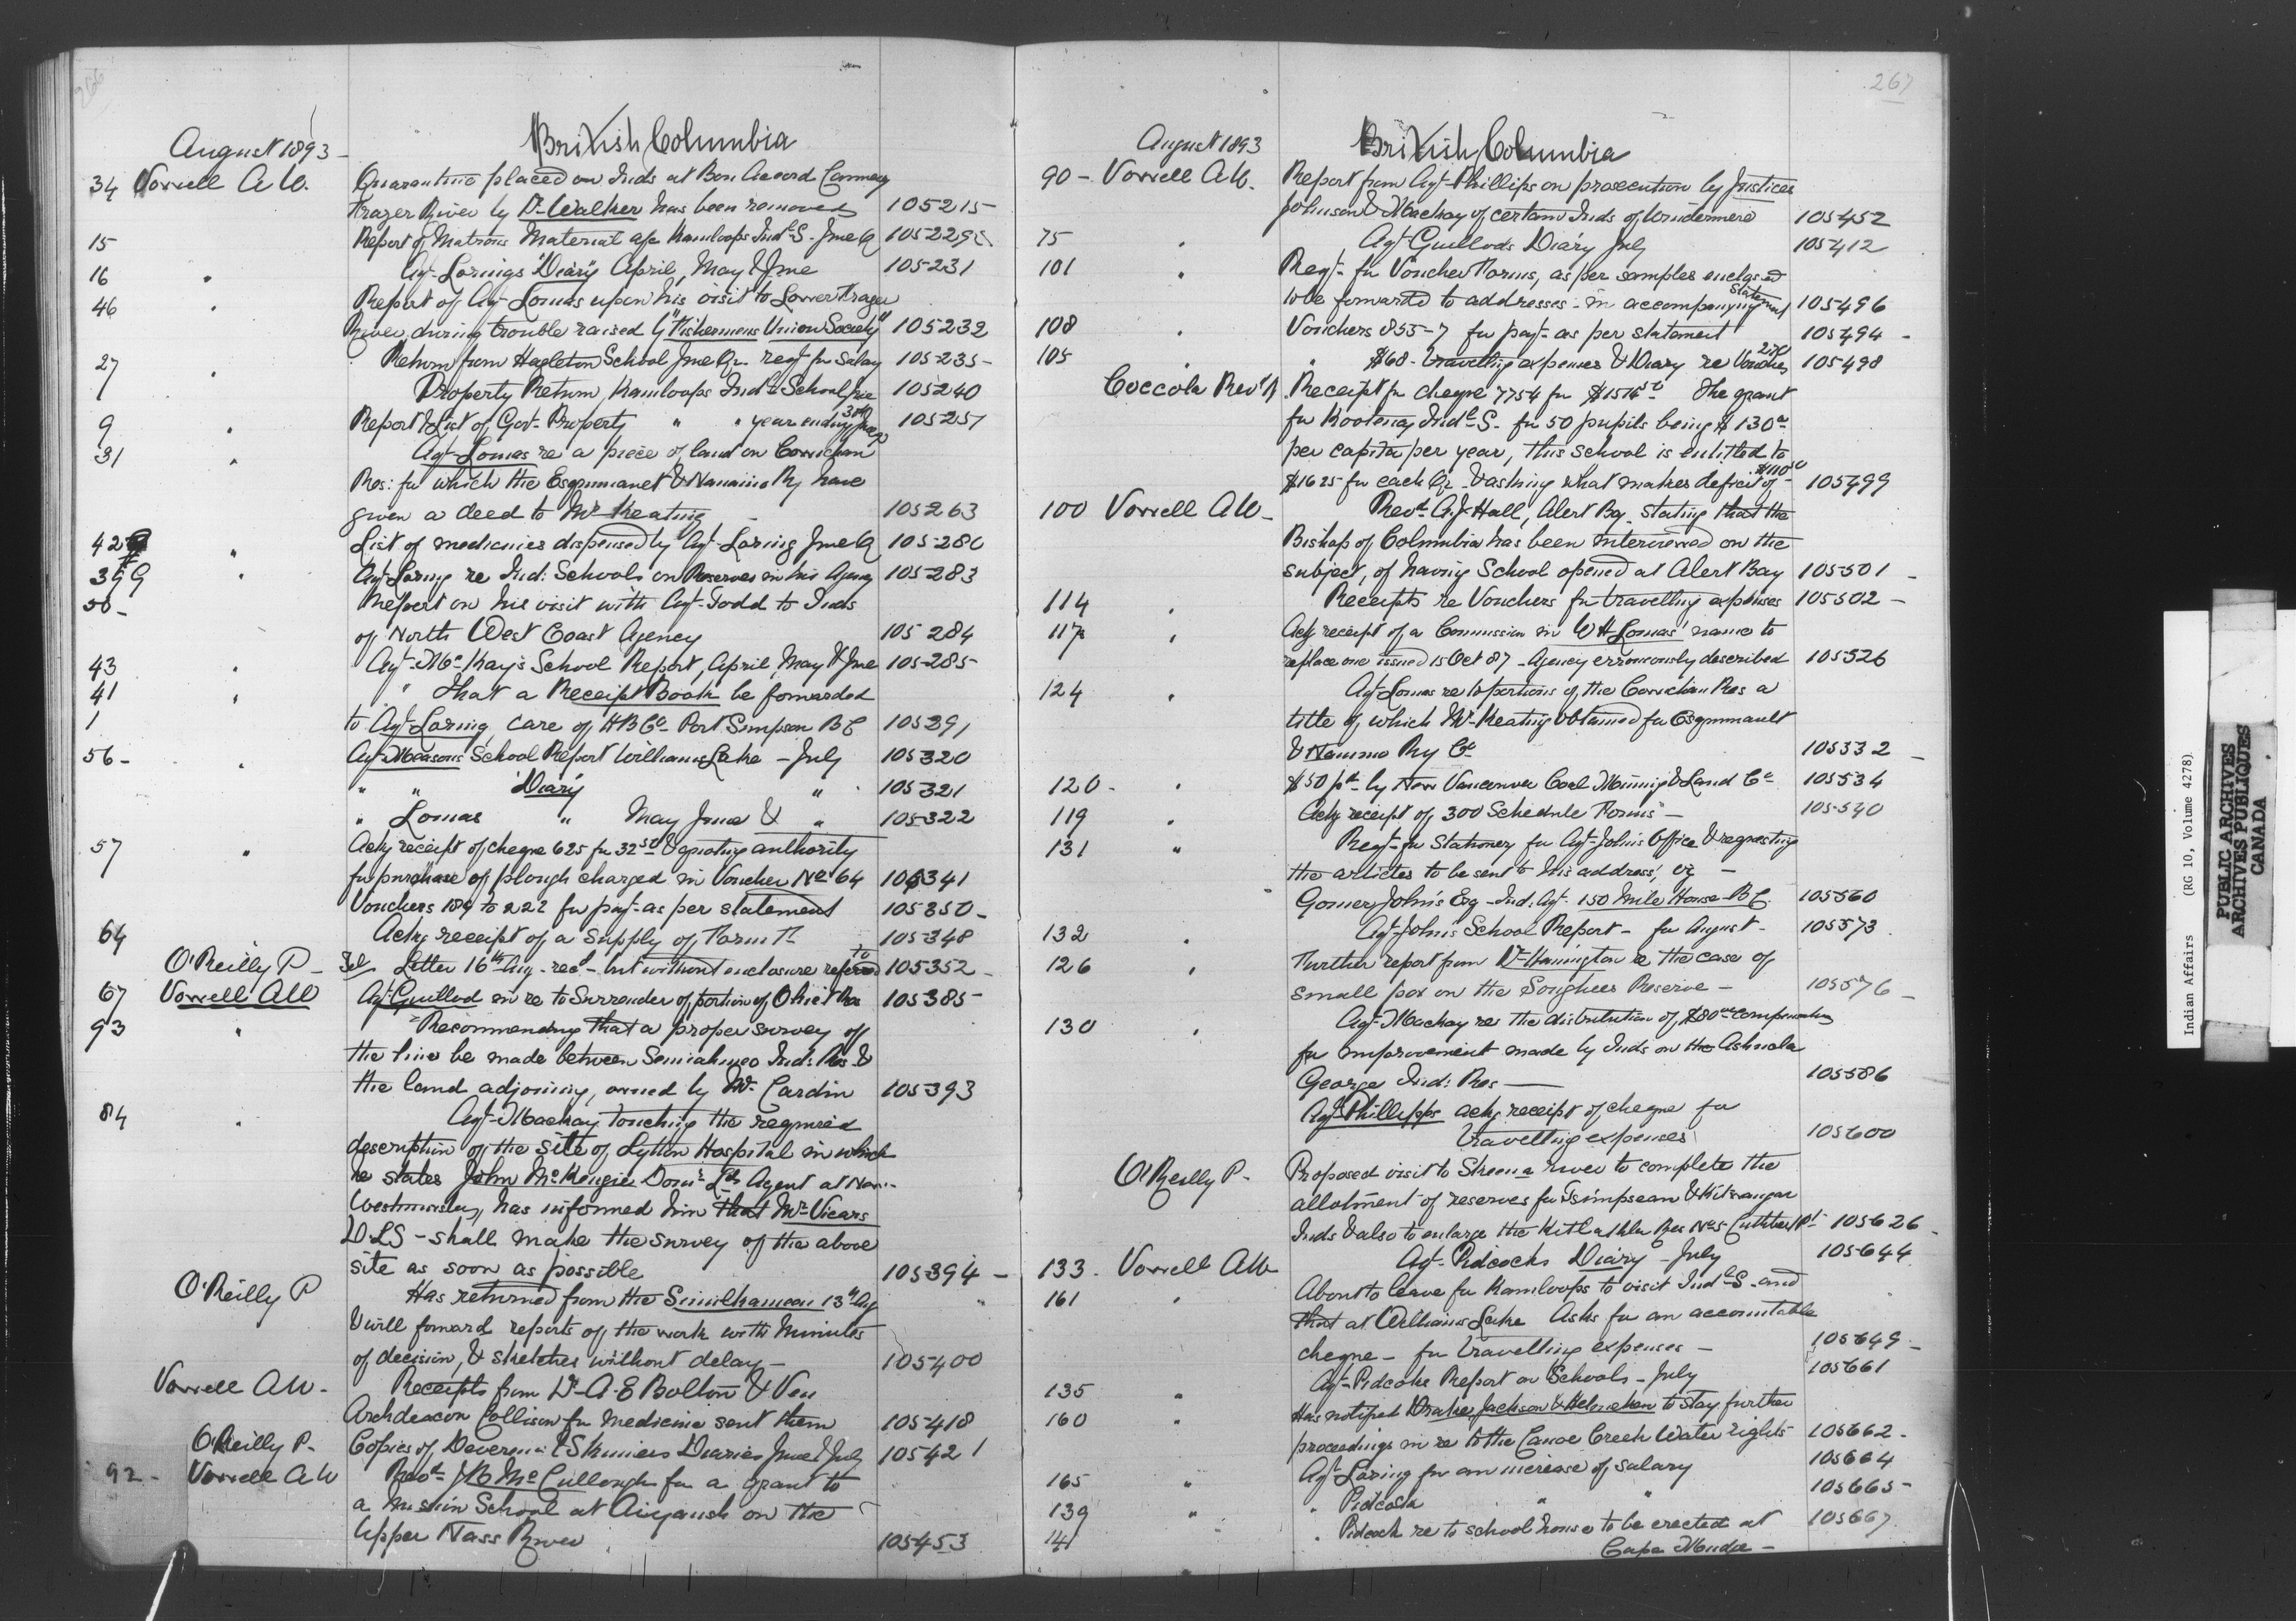 266
August 1893
British Columbia
34 Vowell A W. Quarantine placed on Inds at Bon Accord Cannery
Frazer River by Dr Walker has been removed 105215
15 Report of Matrons Material a/c Kamloops Indl S. June Q 105229
16 " Agt Lorings Diary April, May & June 105231
46 " Report of Agt Lomas upon his visit to Lower Frazer
River, during trouble raised by "Fishermens Union Society" 105232
27 " Return from Hazleton School June Qr. reqt for Salary 105235
7 Property Return Kamloops Indl School June 105240
9 " Report & List of Govt Property " " year ending 30th June 105257
31 " Agt Lomas re a piece of land on Cowichan
Res: for which the Esquimault & Nanaimo Ry have
given a deed to Mr Keating 105263
42 " List of medicines dispensed by Agt Loring June Q 105280
39 " Agt Loring re Ind: Schools on Reserves in his Agency 105283
50 - Report on his visit with Agt Todd to Inds
of North West Coast Agency 105284
43 " Agt McKay's School Report, April, May & June 105285
41 " " that a Receipt Book be forwarded
1 to Agt Loring, care of H B Co Port Simpson B C 105291
56 - " Agt Measons School Report Williams Lake - July 105320
" " Diary " 105321
" Lomas " May June & " 105322
57 " Ackg receipt of cheque 625 for 32 50 & quoting authority
for purchase of plough charged in Voucher No 64 105341
Vouchers 189 to 222 for payt as per statement 105350
64 Ackg receipt of a Supply of Form 105348
O'Reilly P - Letter 16th Aug - recd - but without enclosure referred to 105352
67 Vowell A W Agt Guillod in re to Surrender of portion of Ohiet Res 105385
93 " Recommending that a proper survey of
the line be made between Semiahmoo Ind: Res &
the land adjoining, owned by Mr. Cardin 105393
84 " Agt Mackay touching the required
description of the site of Lytton Hospital in which
he states John McKenzie Domn Lds Agent at New
Westminster, has informed him that Mr Vicars
D L S - shall make the survey of the above
site as soon as possible 105394
O'Reilly P Has returned from the Similkameen 13th Aug
& will forward reports of the work with Minutes
of decision, & sketches without delay - 105400
Vowell A W - Receipts from Dr A. E Bolton & Ven
Archdeacon Collison for medicine sent them 105418
O'Reilly P - Copies of Devereux & Skinners Diaries June & July 105421
92 - Vowell A W Revd J B McCullough for a grant to
a Mission School at Aiyansh on the
Upper Nass River 105453
267
August 1893
British Columbia
90 - Vowell A W. Report from Agt Phillips on prosecution by Justices
Johnson & Mackay of certain Inds of Windermere 105452
75 " Agt Guillods Diary July 105412
101 " Reqt for Voucher Forms, as per samples enclosed
to be forwarded to addresses in accompanying statement 105496
108 " Vouchers 855-7 for payt as per statement 105494
105 " " $68 - travelling expenses & Diary re Voucher 105498
Coccola Revd N Receipt for cheque 7754 for $1516 The grant
for Kootenay Indl S. for 50 pupils being $130
per capita per year, this School is entitled to
$1625 for each Qr & asking what makes deficit of 105499
100 Vowell A W - Revd A J Hall, Alert Bay stating that the
Bishop of Columbia has been interviewed on the
subject, of having School opened at Alert Bay 105501
114 " Receipts re Vouchers for travelling expenses 105502
117 " Ackg receipt of a Commission in W H Lomas' name to
replace one issued 15 Oct 87 - Agency erroneously described 105526
124 " Agt Lomas re to portions of the Cowichan Res a
title of which Mr Keating obtained for Esquimault
& Nanaimo Ry Co 105332
120 - " $50 pd by New Vancouver Coal Mining & Land Co 105534
119 " Ackg receipt of 300 Schedule Forms - 105540
131 " Reqt for Stationery for Agt Johns Office & requesting
the articles to be sent to his address, viz -
Gomer Johns Esq - Ind. Agt. 150 Mile House B C. 105560
132 " Agt Johns School Report - for August - 105573
126 " Further report from Dr Hanington re the case of
small pox on the Songhees Reserve - 105576
130 " Agt Mackay re the distribution of $80 compensation
for improvement made by Inds on the Ashnola
George Ind: Res - 105586
Agt Phillipps ackg receipt of cheque for
travelling expenses 105600
O'Reilly P - Proposed visit to Skeena river to complete the
allotment of reserves for Tsimpsean & Kitwangar
Inds & also to enlarge the Kitlathla Res No 5 105626
133 - Vowell A W Agt Pidcocks Diary - July 105644
161 " About to leave for Kamloops to visit Indl S. and
that at Williams Lake Asks for an accountable
cheque - for travelling expenses - 105649
135 " Agt Pidcocks Report on Schools - July 105661
160 " Has notified Drake, Jackson & Helmcken to stay further
proceedings in re to the Canoe Creek Water rights 105662
165 " Agt Loring for an increase of salary 105664
139 " " Pidcock " " 105665
141 " Pidcock re to school house to be erected at 105667
Cape Mudge -
Indian Affairs (RG 10, Volume 4278)
PUBLIC ARCHIVES
ARCHIVES PUBLIQUES
CANADA